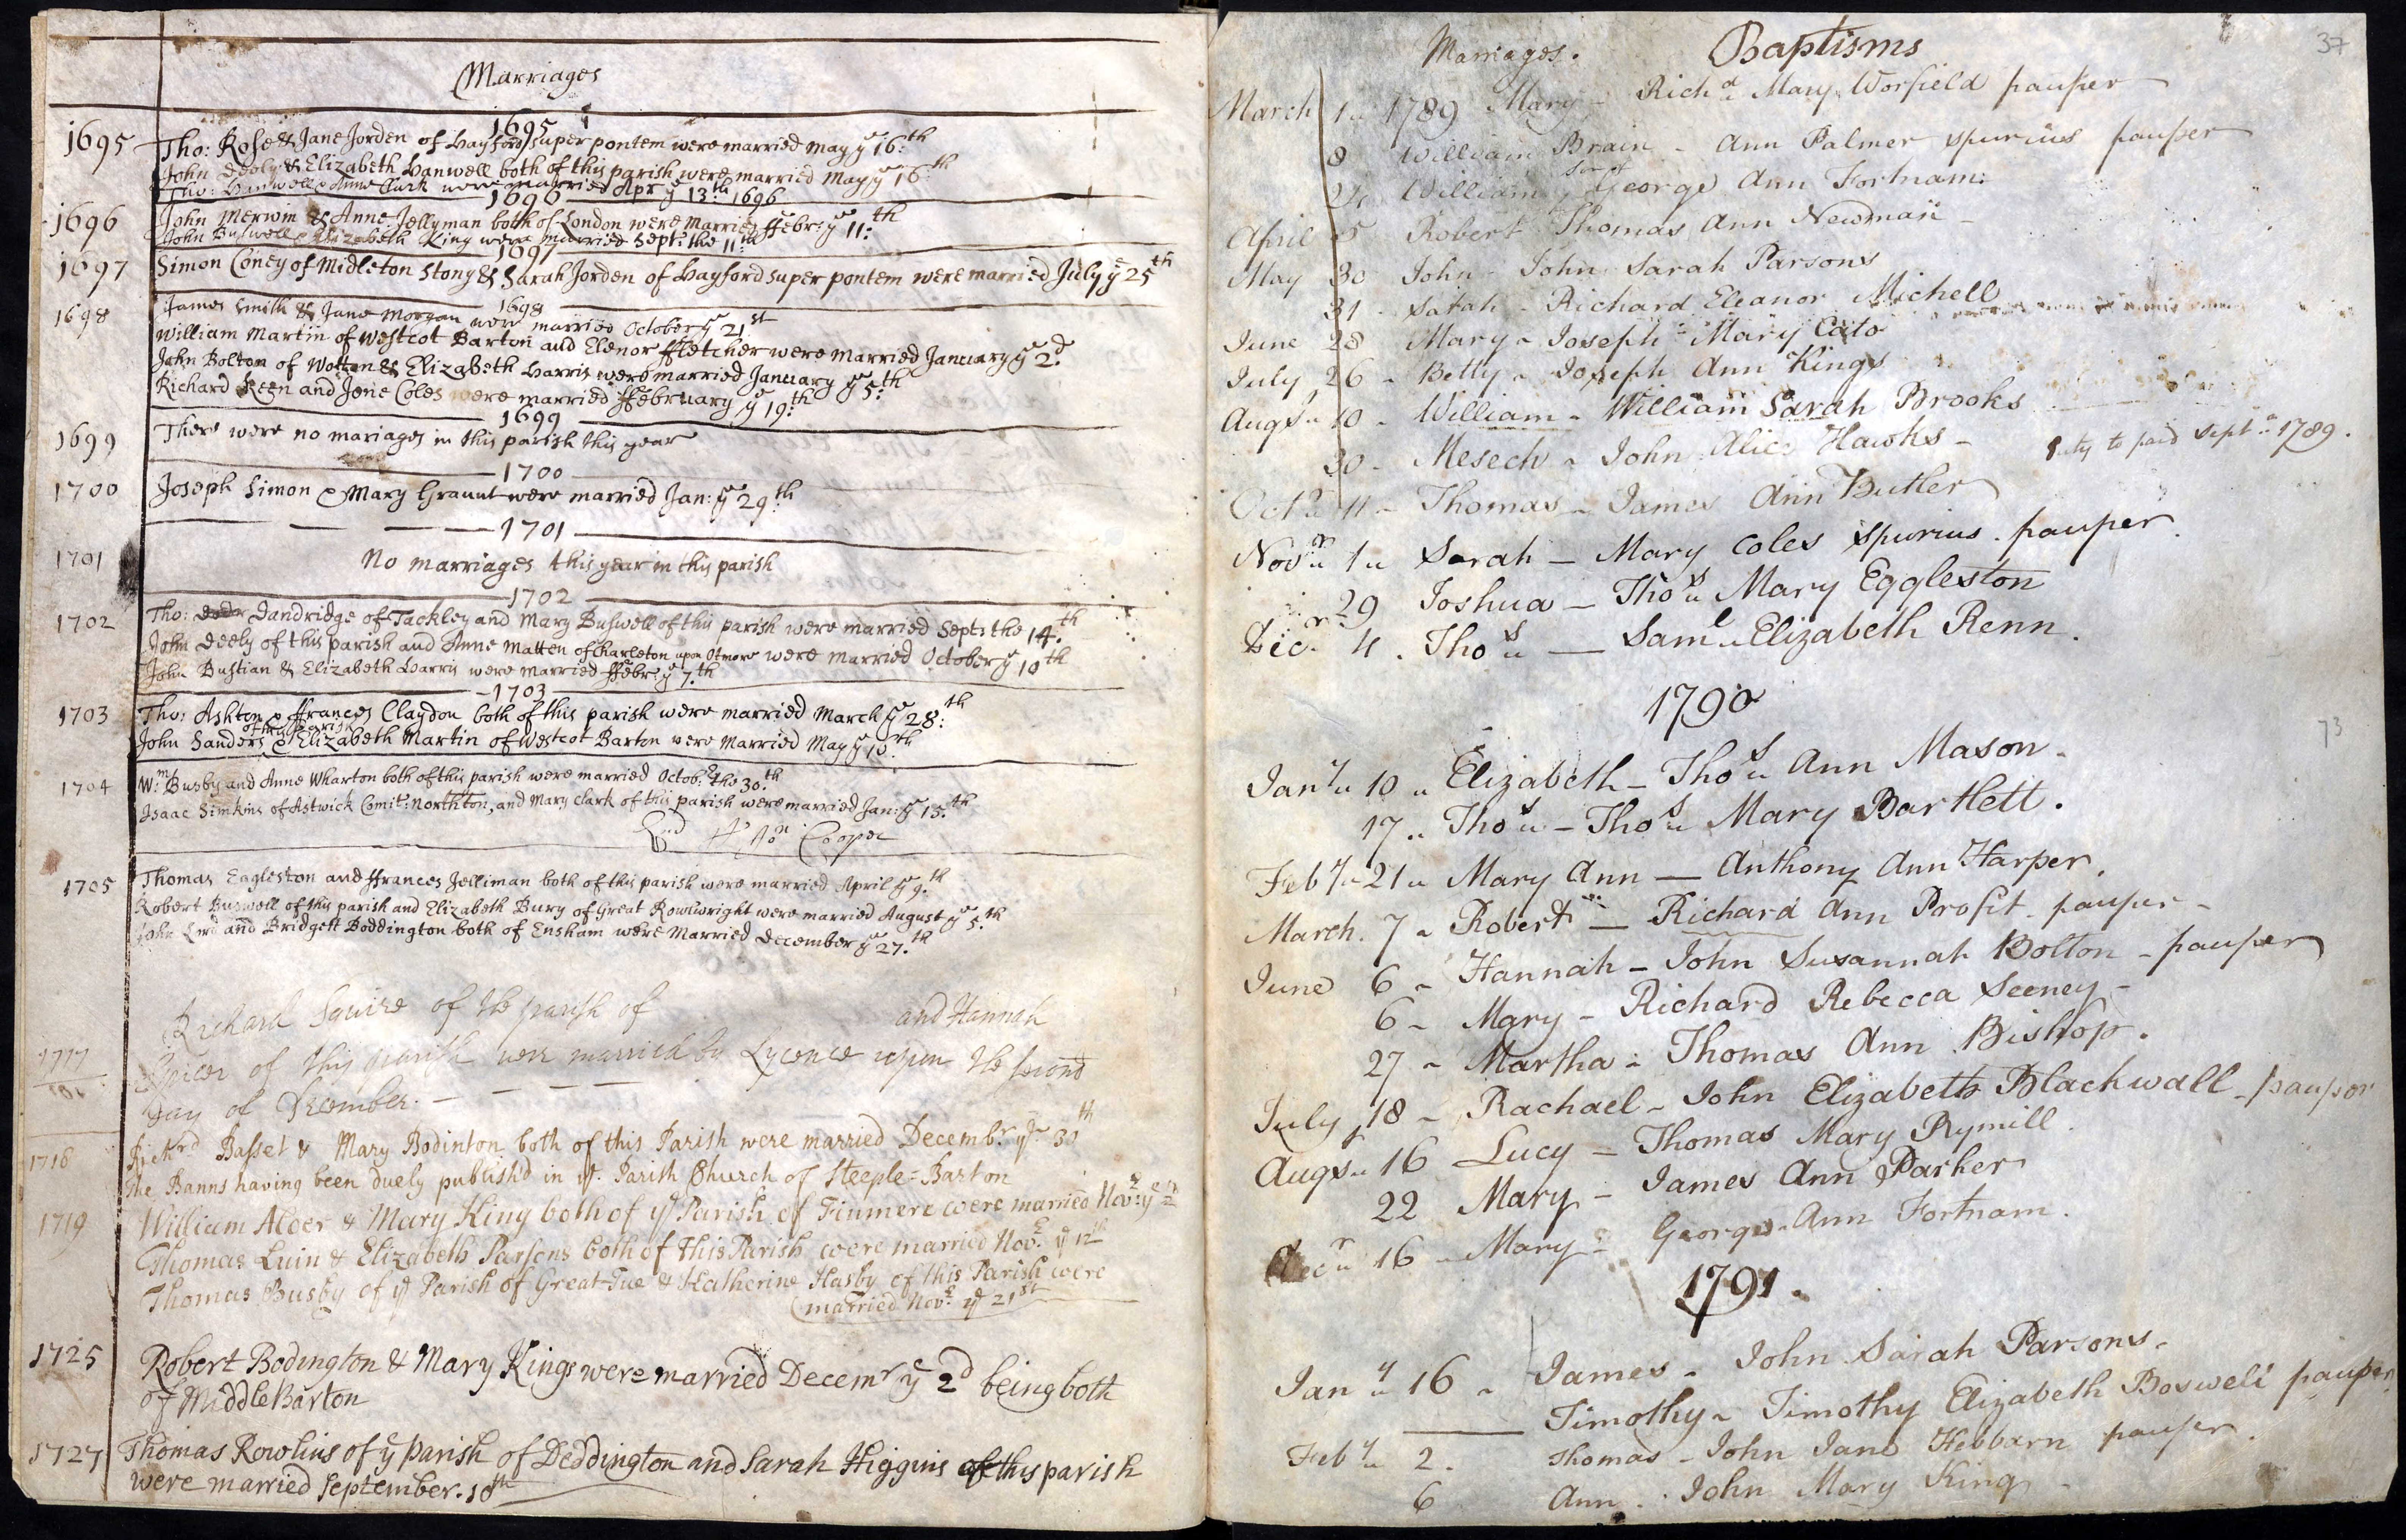 Marriages
1695
1695 Tho: Rose & Jane Jorden of Hayford super pontem were married May ye 16th
John Deely & Elizabeth Hanwell both of this parish were married May ye 16th
Tho: Hanwell & Anne Clark were married Apr ye 13th 1696
1696
1696 John Merwin & Anne Jellyman both of London were Married ffebr: ye 11th
John Buswell & Elizabeth King were married Sept: the 11th
1697
1697 Simon Coney of Midleton Stony & Sarah Jorden of Hayford super pontem were married July ye 25th
1698
1698 James Smith & Jane Morgan were married October ye 21st
William Martin of Westcot Barton and Elenor ffletcher were married January ye 2d
John Bolton of Wotton & Elizabeth Harris were married January ye 5th
Richard Keen and Jone Coles were married ffebruary ye 19th
1699
1699 There were no mariages in this parish this year
1700
1700 Joseph Simon & Mary Graunt were married Jan: ye 29th
1701
1701 No marriages this year in this parish
1702
1702 Tho: Dandridge of Tackley and Mary Buswell of this parish were married Sept: the 14th
John Deely of this parish and Anne Matten of Charleton upon Otmore were married October ye 10th
John Bustian & Elizabeth Harris were married ffebr: ye 7th
1703
1703 Tho: Ashton & ffrances Claydon both of this parish were married March ye 28th
of this parish
John Sanders & Elizabeth Martin of Westcot Barton were Married May ye 10th
1704 Wm Busby and Anne Wharton both of this parish were married Octobr the 30th
Isaac Simkins of Astwick Comit: Northton, and Mary Clark of this parish were married Jan: ye 15th
Cooper
1705 Thomas Eagleston and ffrances Jelliman both of this parish were married April ye 9th
Robert Buswell of this parish and Elizabeth Bury of Great Rowlwright were married August ye 5th
John Lord and Bridgett Boddington both of Ensham were Married December ye 27th
Richard Squire of the parish of and Hannah
1717 Spicer of this parish were married by Lycence upon the second
Day of December
1718 Richrd Basset & Mary Bodinton both of this Parish were married Decembr ye 30th
the Banns having been duely publish'd in ye Parish Church of Steeple=Barton
1719 William Alder & Mary King both of ye Parish of Finmere were married Novr: ye 2d
Thomas Luin & Elizabeth Parsons both of this Parish were married Novr ye 12th
Thomas Busby of ye Parish of Great-Tue & Katherine Hasby of this Parish were
married Novr ye 21st
1725 Robert Bodington & Mary Kings were married Decemr ye 2d being both
of Middle Barton
1727 Thomas Rowlins of ye parish of Deddington and Sarah Higgins of this parish
were married September. 10th
37
Marriages. Baptisms
March 1 1789 Mary - Richd Mary Worfield pauper
8 William Brain - Ann Palmer spurius pauper
William son of George Ann Fortnam
April 5 Robert Thomas Ann Newman
May 30 John - John Sarah Parsons
31 Sarah - Richard Eleanor Michell
June 28 Mary - Joseph Mary Cato
July 26 - Betty - Joseph Ann Kings
Augst 10 - William - William Sarah Brooks
30 - Mesech - John Alice Hawks -
Duty to paid Sept 1789.
Octr 11 - Thomas - James Ann Butler
Novr 1 Sarah - Mary Coles spurius. pauper
29 Joshua - Thos Mary Eggleston
Decr 4. Thos - Saml Elizabeth Renn.
1790
73
Jany 10 Elizabeth - Thos Ann Mason.
17 Thos - Thos Mary Bartlett.
Feby 21 Mary Ann - Anthony Ann Harper.
March. 7 - Robert - Richard Ann Profit. pauper -
June 6 - Hannah - John Susannah Bolton - pauper
6 - Mary - Richard Rebecca Seeney -
27 - Martha - Thomas Ann Bishop.
July 18 - Rachael - John Elizabeth Blackwall - pauper
Augst 16 Lucy - Thomas Mary Rymill.
22 Mary - James Ann Parker
Decr 16 - Mary - George Ann Fortnam.
1791.
Jany 16 - James - John Sarah Parsons -
Timothy - Timothy Elizabeth Boswell pauper
Feby 2. Thomas - John Jane Hebbarn pauper.
6 Ann - John Mary King -